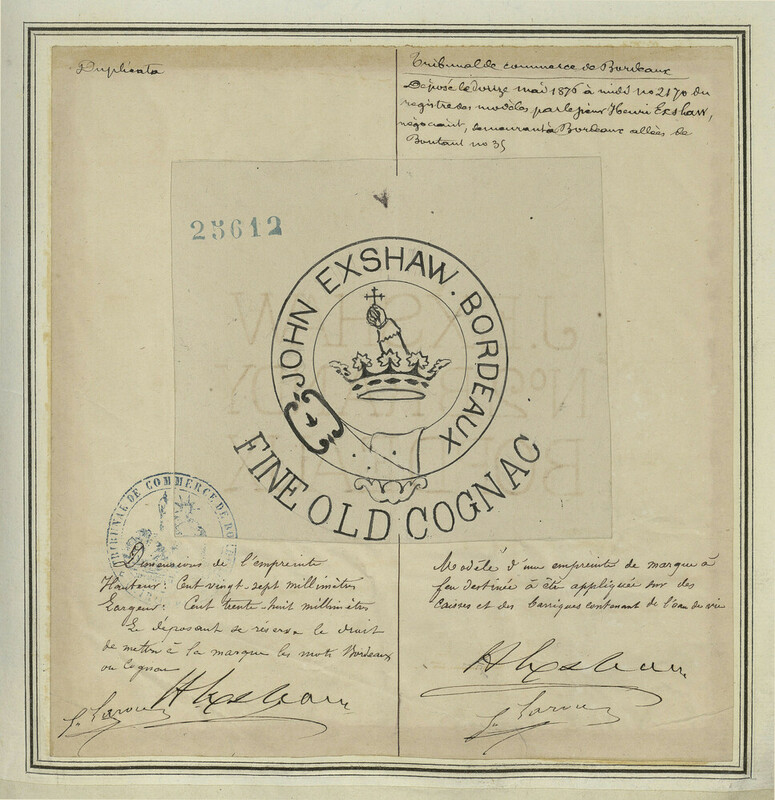 Duplicata
Tribunal de commerce de Bordeaux
Déposé le douze mai 1876 à midi no 2170 du
registre des modèles par le sieur Henri Exshaw,
négociant, demeurant à Bordeaux allées de
Boutaut no 35
25612
JOHN EXSHAW. BORDEAUX
FINE OLD COGNAC
J. EXSHAW
No 2 BRANDY
BORDEAUX
TRIBUNAL DE COMMERCE DE BO
Dimensions de l'empreinte
Hauteur: Cent vingt-sept millimètres
Largeur: Cent trente-huit millimètres
Le déposant se réserve le droit
de mettre à la marque les mots Bordeaux
ou Cognac
Modèle d'une empreinte de marque à
feu destinée à être appliquée sur des
caisses et des barriques contenant de l'eau de vie
H Exshaw
H Exshaw